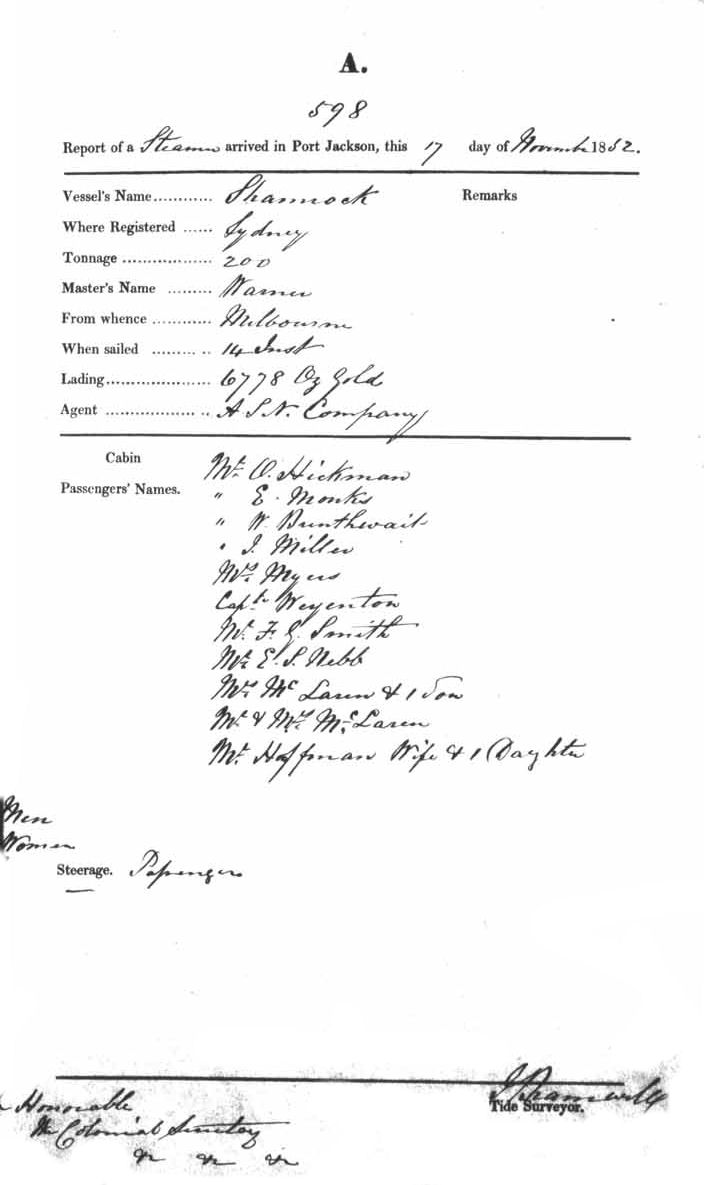 A.
598
Report of a Steamer arrived in Port Jackson, this 17 day of November 1852.
Vessel's Name............ Shamrock Remarks
Where Registered ...... Sydney
Tonnage .................. 200
Master's Name ......... Warner
From whence ............ Melbourne
When sailed ......... .. 14 Inst
Lading..................... 6778 Oz Gold
Agent .................. .. A S N. Company
Cabin
Passengers' Names.
Mr. O. Hickman
" E. Monks
" W. Bunthwait
" J. Miller
Mrs. Myers
Capt. Weyenton
Mr. F. G. Smith
Mr. E. S. Nebb
Mrs. Mc Laren & 1 Son
Mr. & Mrs. Mc Laren
Mr. Hoffman Wife & 1 Daughter
Men
Women
Steerage. Passengers
Honorable
the Colonial Secretary
Tide Surveyor.